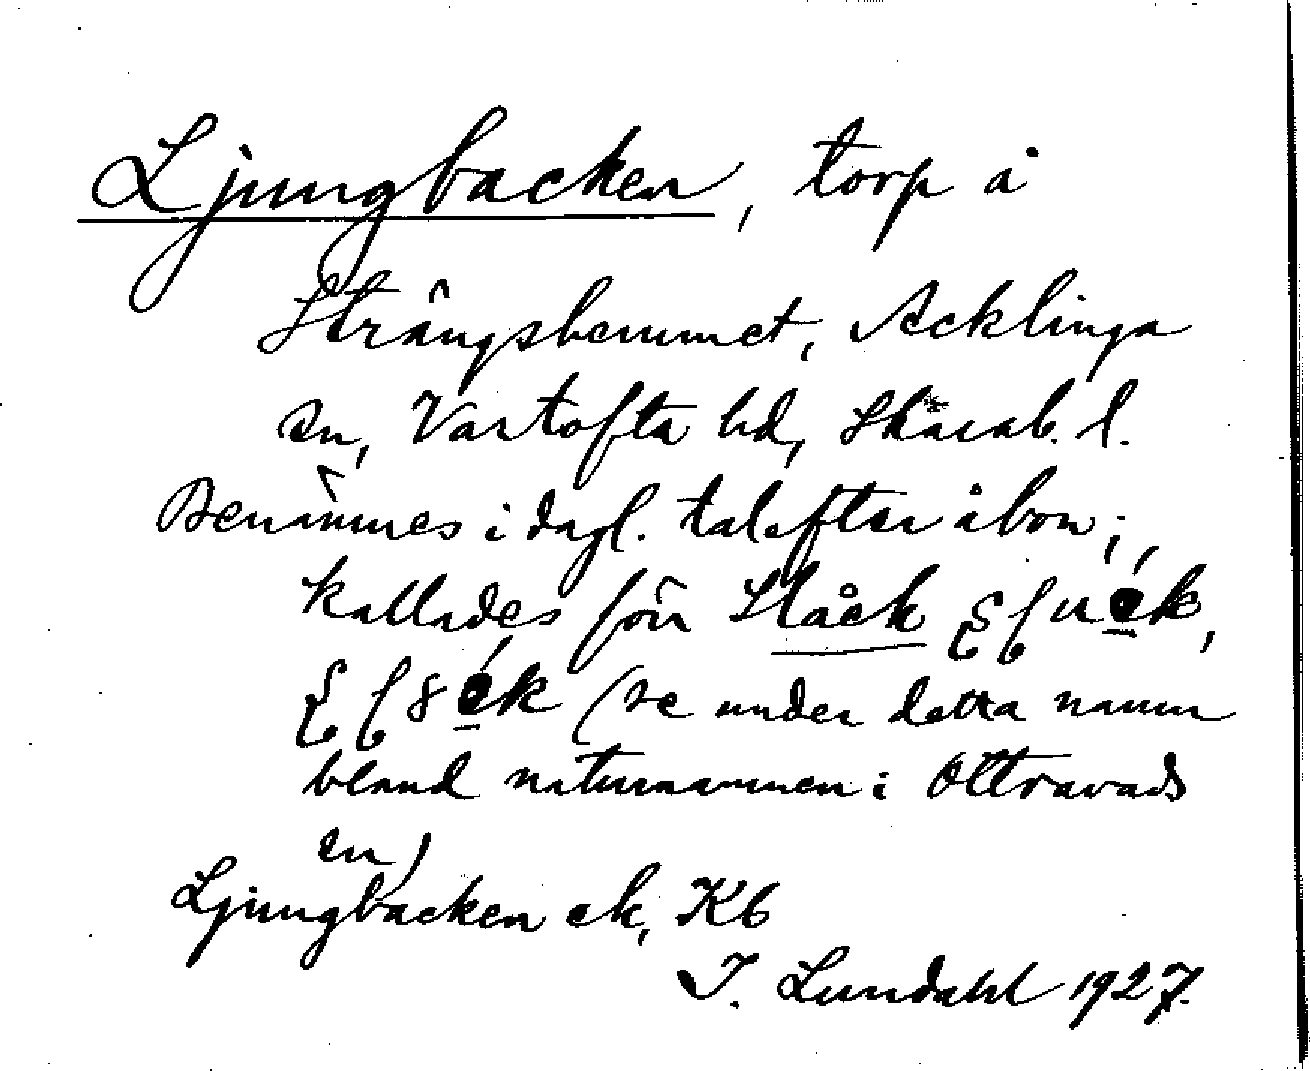 Ljungbacken, torp å
Strängsbemmet, Acklinga
sn, Vartofta hd, Skarab. l.
Benämnes i dagl. tal efter åbon;
kallades förr Slåck
(se under detta namn
bland naturnamnen i Ottravads
sn)
Ljungbacken ek, Kb
I. Lundahl 1927.